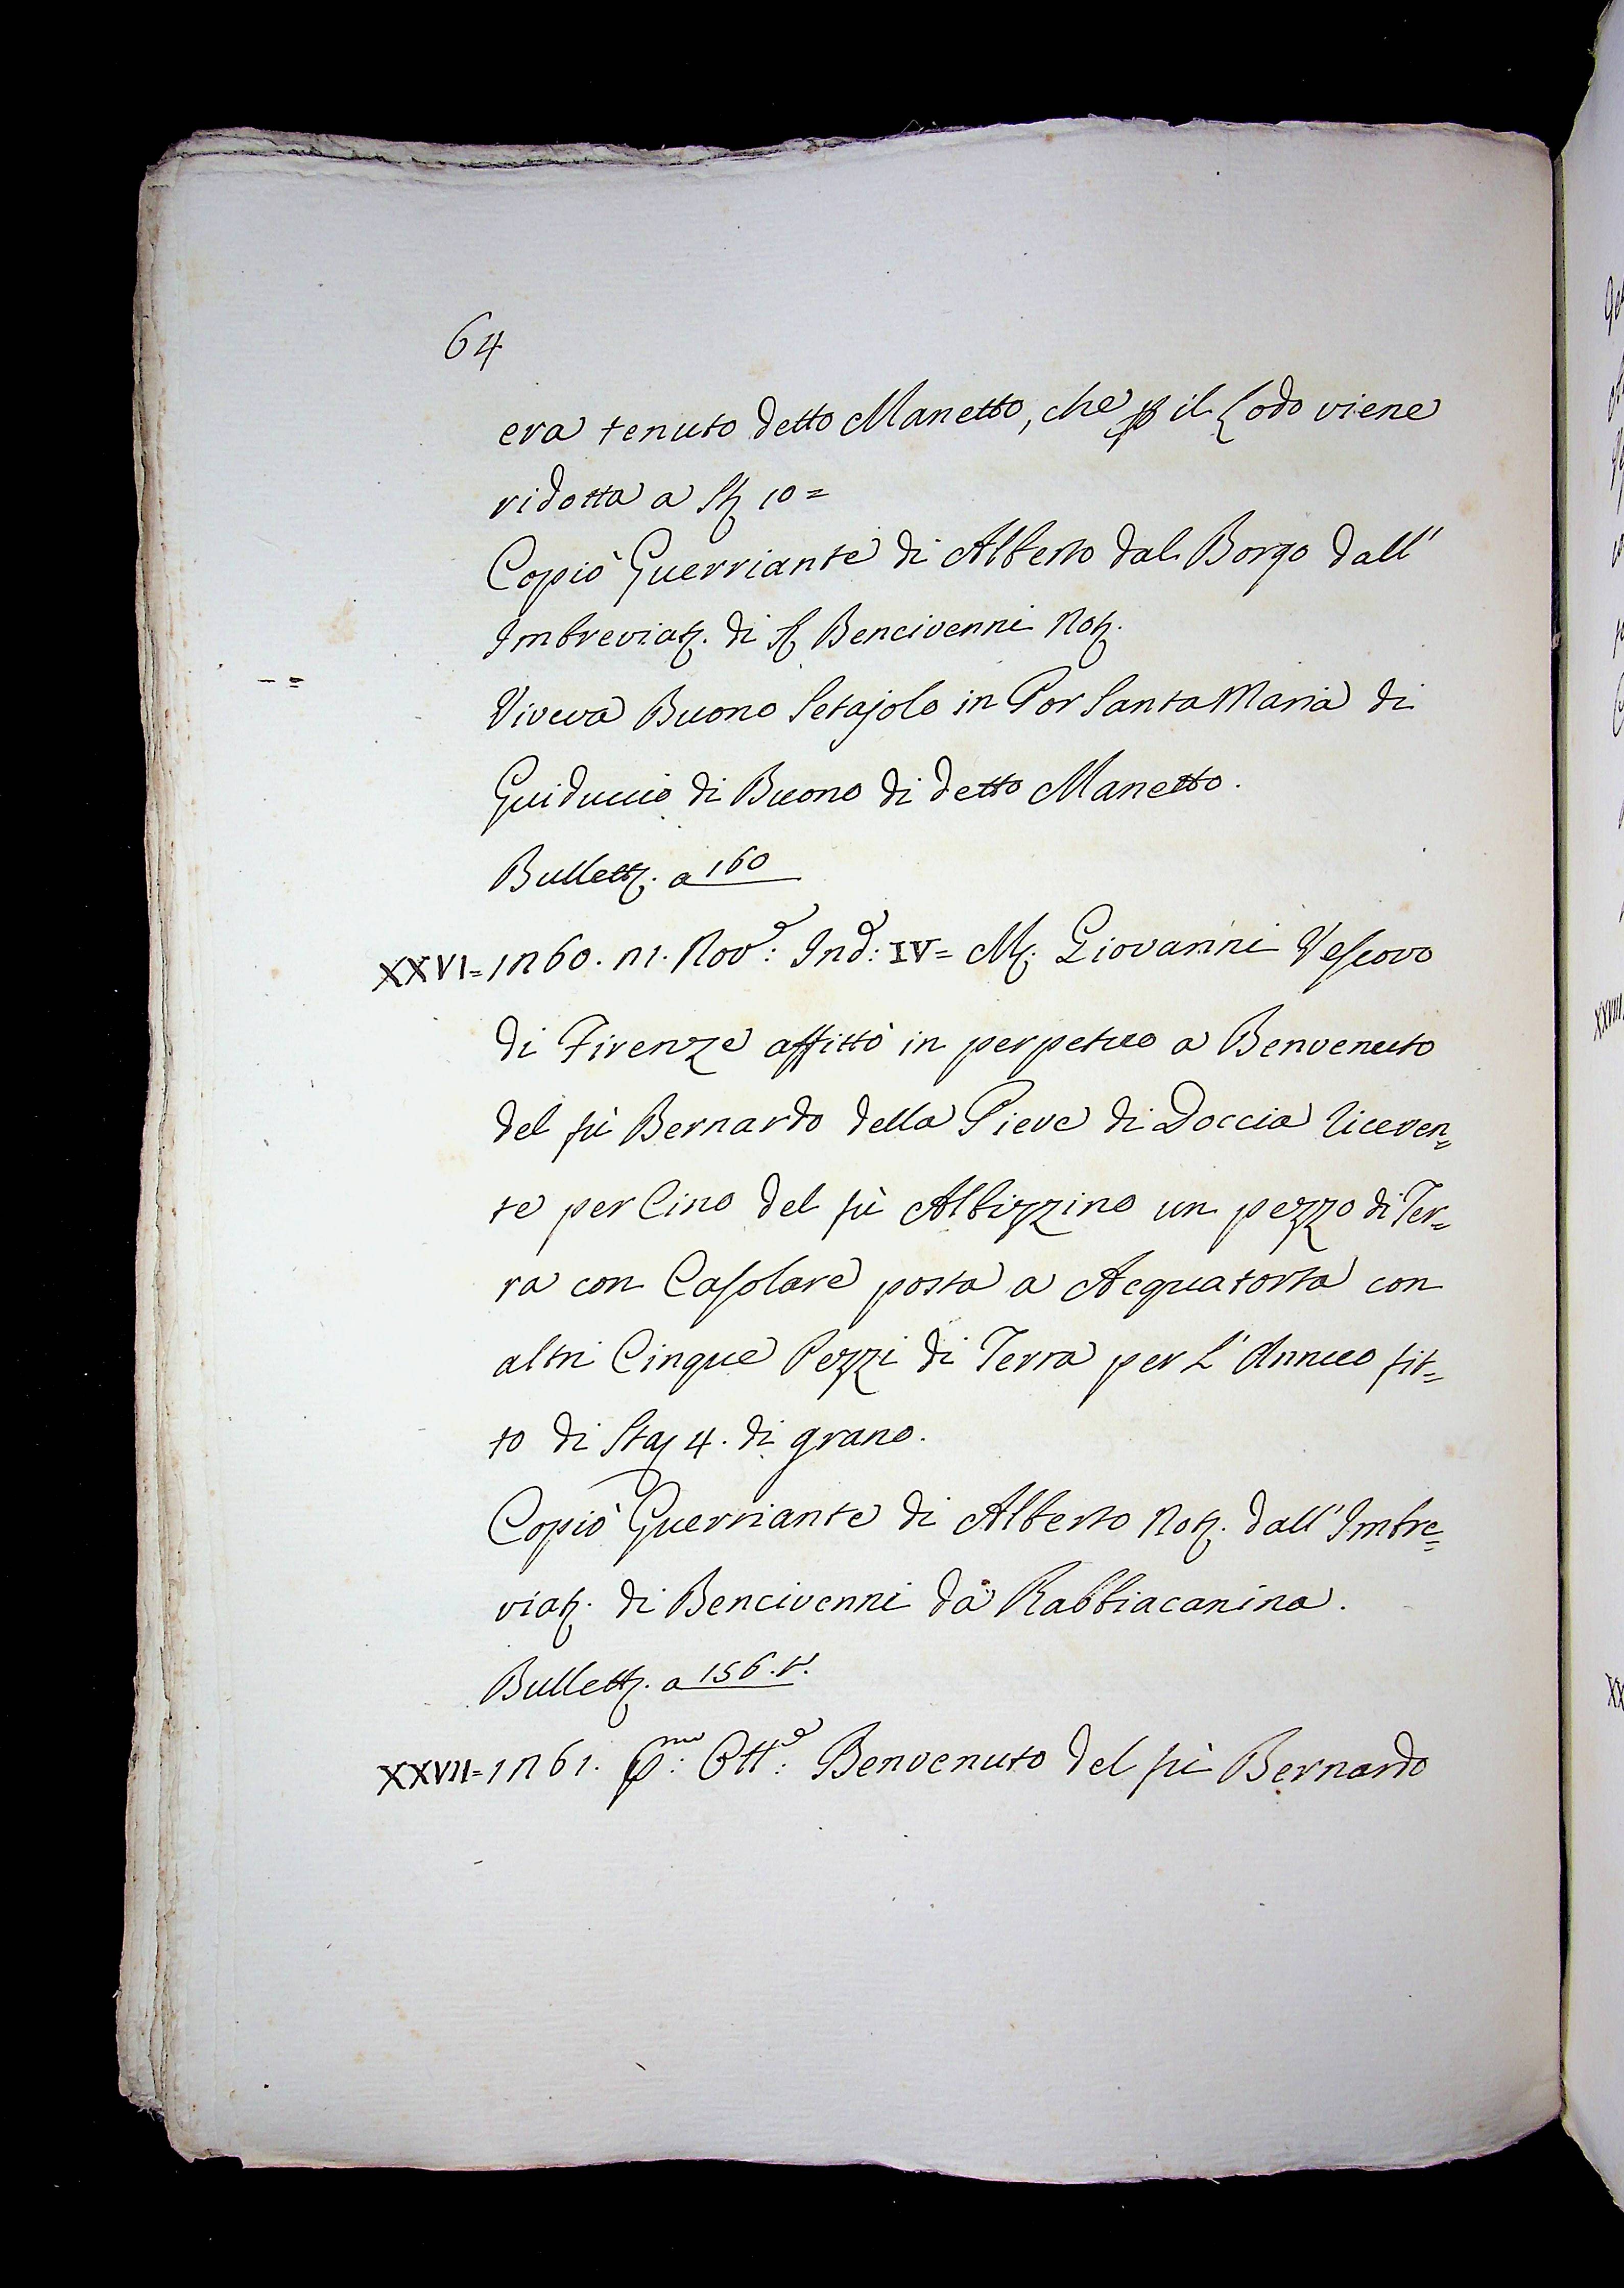 64
era tenuto detto Manetto, che p il Lodo viene
ridotta a St 10=
Copiò Guerriante di Alberto dal Borgo dall'
Imbreviaz. di S Bencivenni Not.
Viveva Buono Setajolo in Por Santa Maria di
Guiduccio di Buono di detto Manetto.
Bullett. a 160
XXVI=1260. 21. Nov: Ind: IV= M. Giovanni Vescovo
di Firenze affittò in perpetuo a Benvenuto
del fù Bernardo della Pieve di Doccia riceven=
te per Cino del fù Albizzino un pezzo di Ter=
ra con Casolare posta a Acquatorta con
altri Cinque Pezzi di Terra per l'Annuo fit=
to di Staj 4. di grano.
Copiò Guerriante di Alberto Not. dall'Imbre=
viaz. di Bencivenni da Rabbiacanina.
Bullett. a 156.v.
XXVII=1261. Pmo: Ott: Benvenuto del fù Bernardo